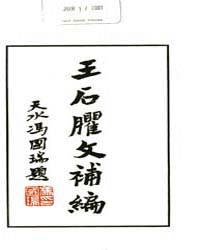 JUN 1 / 2001
王石臞文補編
天水馮國瑞題